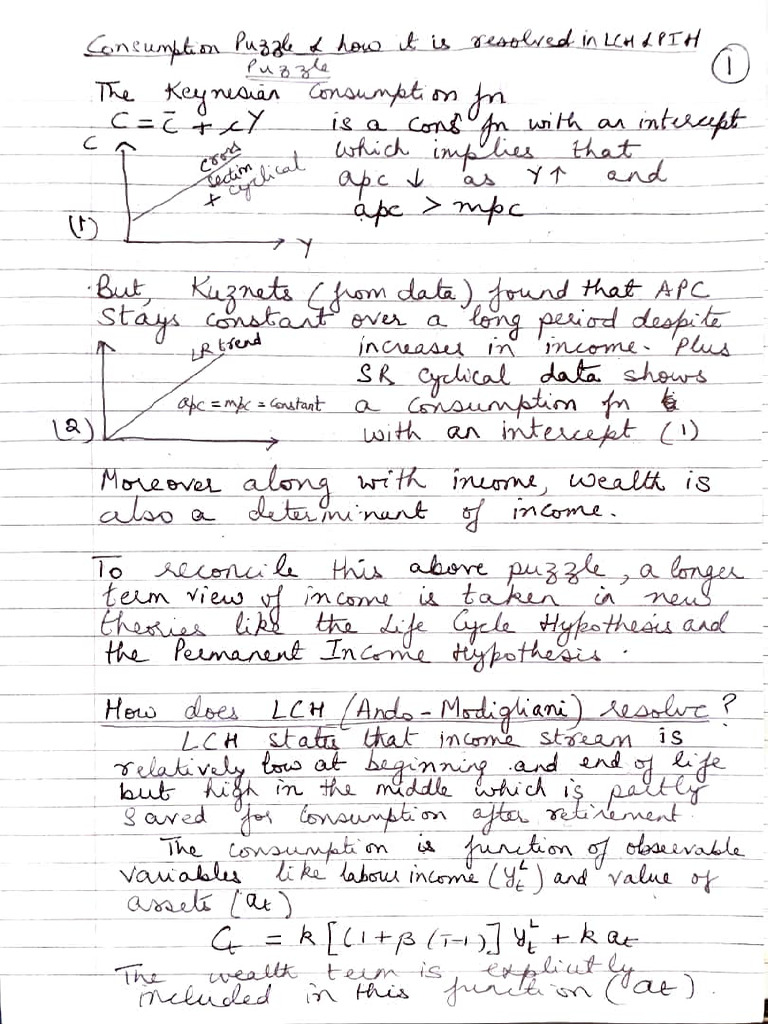 Consumption Puzzle & how it is resolved in LCH & PIH
①
Puzzle
The Keynesian Consumption fn
C = c̄ + cY is a cons fn with an intercept
C
which implies that
cross
section
+ cyclical
apc ↓ as Y↑ and
apc > mpc
(1)
Y
But, Kuznets (from data) found that APC
stays constant over a long period despite
LR trend
increases in income. Plus
SR cyclical data shows
apc = mpc = constant
a consumption fn
(2)
with an intercept (1)
Moreover along with income, wealth is
also a determinant of income.
To reconcile this above puzzle, a longer
term view of income is taken in new
theories like the Life Cycle Hypothesis and
the Permanent Income Hypothesis.
How does LCH (Ando-Modigliani) resolve?
LCH states that income stream is
relatively low at beginning and end of life
but high in the middle which is partly
saved for consumption after retirement.
The consumption is function of observable
variables like labour income (Y_t^L) and value of
assets (a_t)
C_t = k [(1 + β (T-1)] Y_t^L + k a_t
The wealth term is explicitly
included in this function (a_t).